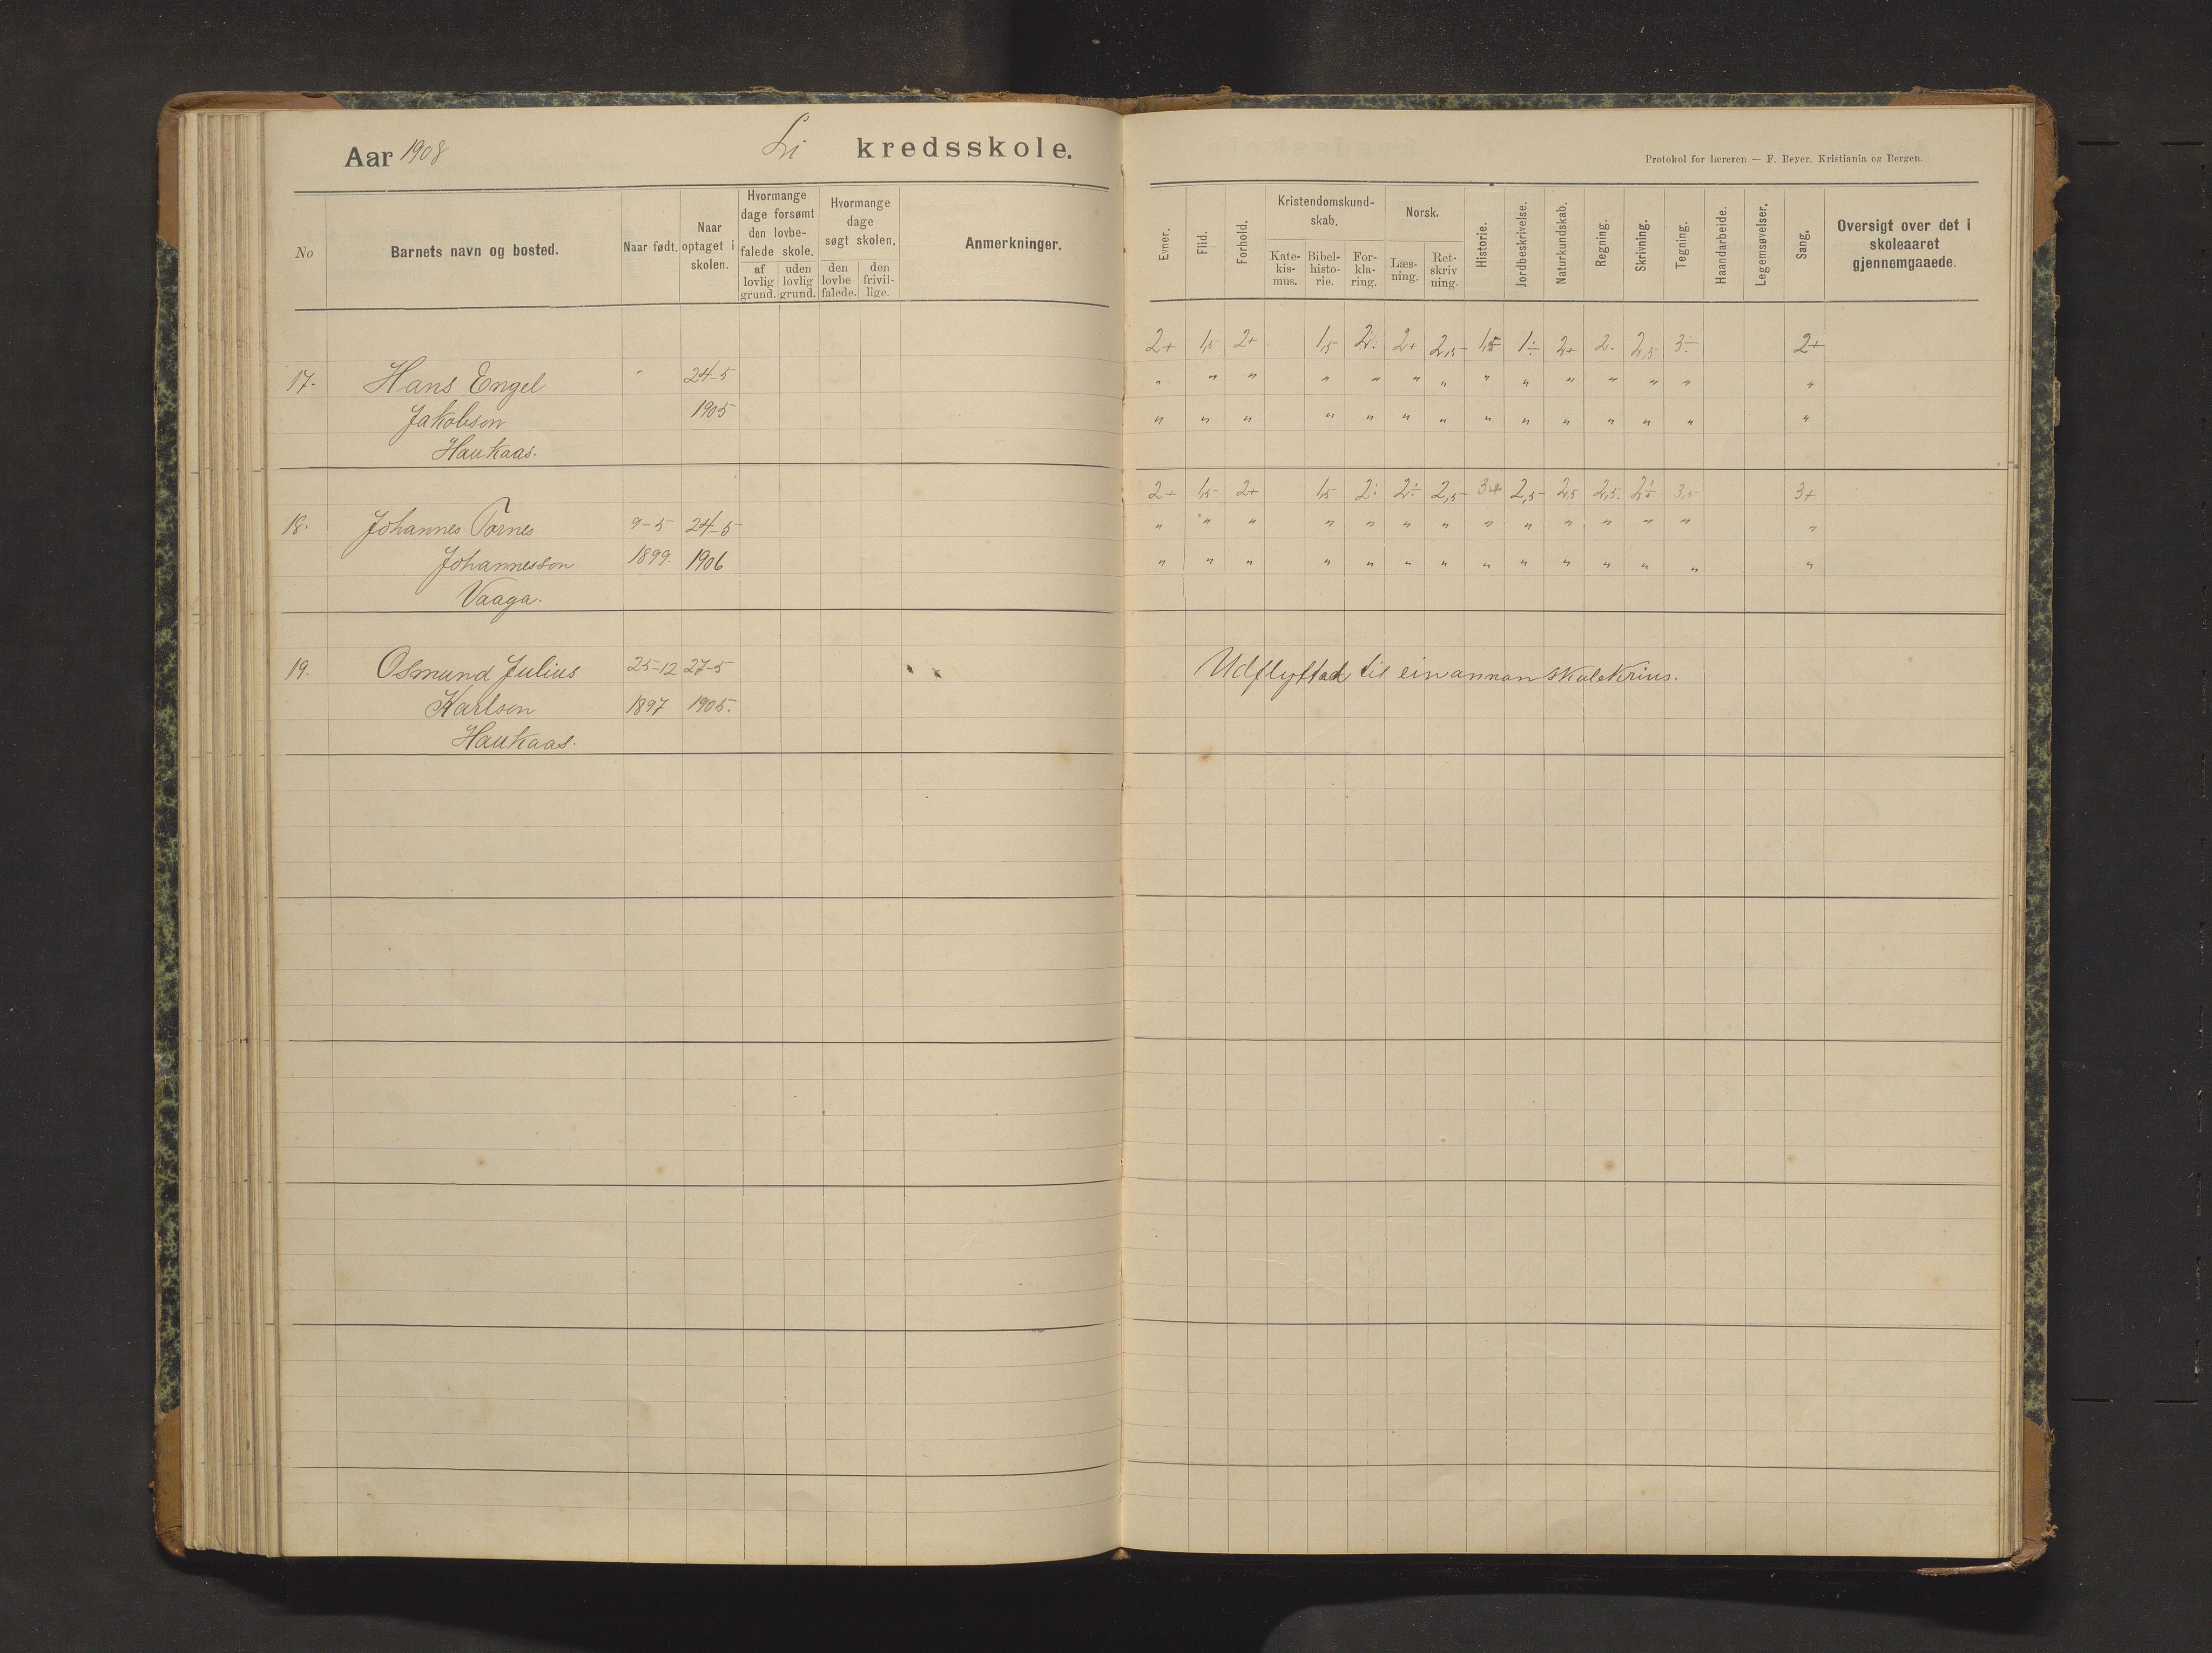 Aar 1908 Li kredsskole.
Protokol for læreren — F. Beyer. Kristiania og Bergen.
No
Barnets navn og bosted.
Naar født.
Naar
optaget i
skolen.
Hvormange
dage forsømt
den lovbe-
falede skole.
af
lovlig
grund.
uden
lovlig
grund.
Hvormange
dage
søgt skolen.
den
lovbe
falede.
den
frivil-
lige.
Anmerkninger.
Evner.
Flid.
Forhold.
Kristendomskund-
skab.
Kate-
kis-
mus.
Bibel-
histo-
rie.
For-
kla-
ring.
Norsk.
Læs-
ning.
Ret-
skriv
ning.
Historie.
Jordbeskrivelse.
Naturkundskab.
Regning.
Skrivning.
Tegning.
Haandarbeide.
Legemsøvelser.
Sang.
Oversigt over det i
skoleaaret
gjennemgaaede.
2+ 1,5 2+ 1,5 2÷ 2+ 2,5 1,5 1÷ 2+ 2. 2,5 3÷ 2+
17. Hans Engel " 24-5 " " " " " " " " " " " " " "
Jakobson 1905 " " " " " " " " " " " " " "
Haukaas.
2+ 1,5 2+ 1,5 2÷ 2÷ 2,5 3+ 2,5 2,5 2,5 2÷ 3,5 3+
18. Johannes Tornes 9-5 24-5 " " " " " " " " " " " " " "
Johannesson 1899. 1906 " " " " " " " " " " " " " "
Vaaga.
19. Osmund Julius 25-12 27-5 Udflyttad til ein annan skulekrins.
Karlson 1897 1905.
Haukaas.